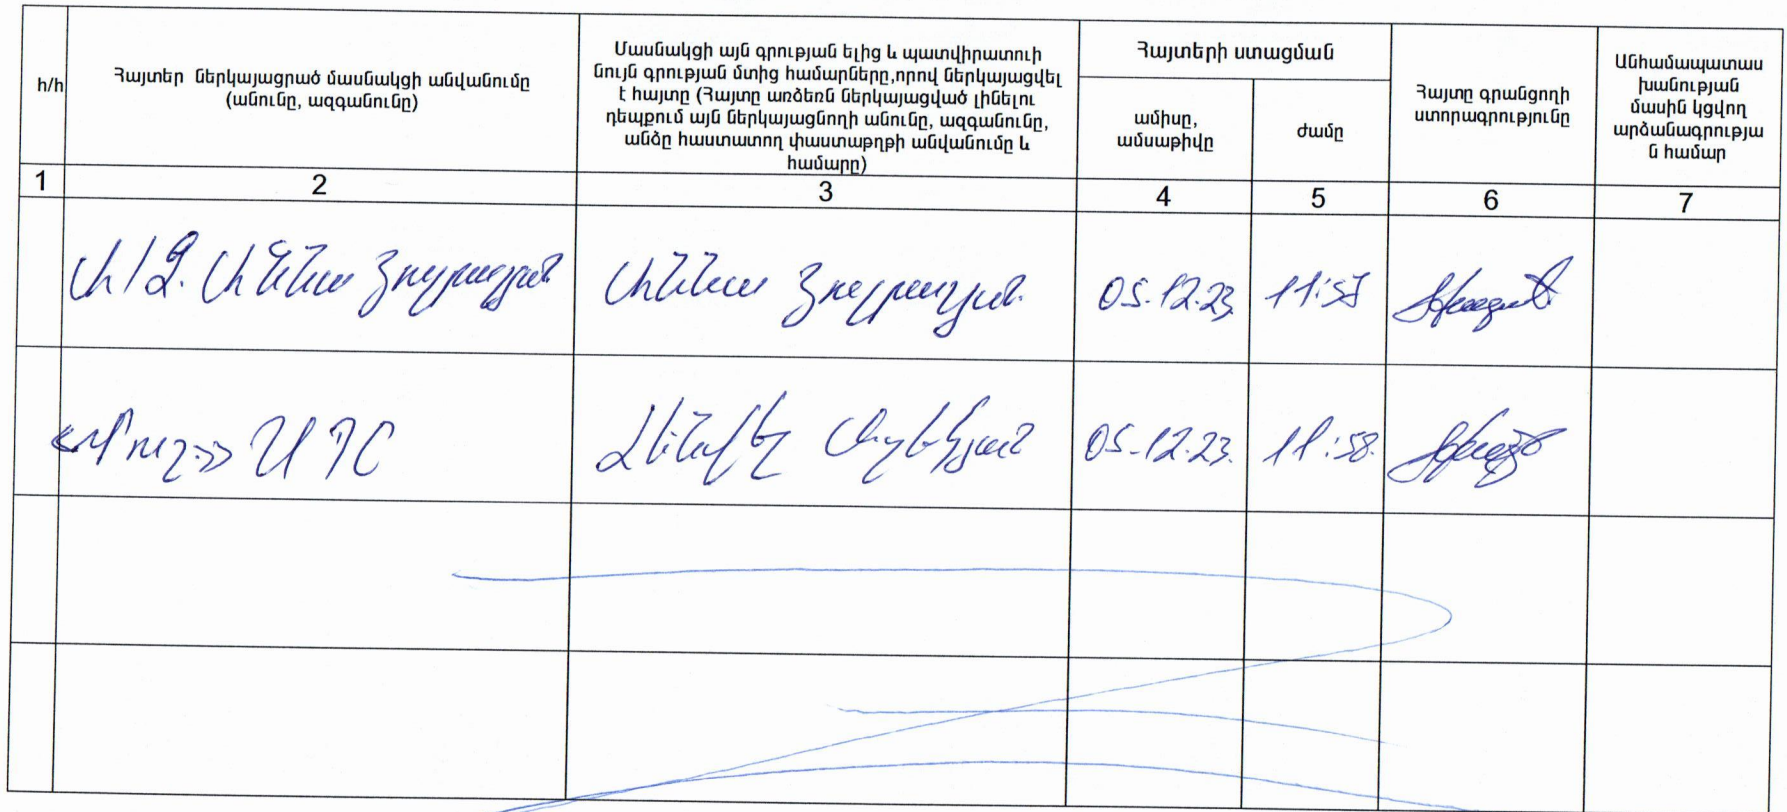 հ/հ
Հայտեր ներկայացրած մասնակցի անվանումը
(անունը, ազգանունը)
Մասնակցի այն գրության ելից և պատվիրատուի
նույն գրության մտից համարները,որով ներկայացվել
է հայտը (Հայտը առձեռն ներկայացված լինելու
դեպքում այն ներկայացնողի անունը, ազգանունը,
անձը հաստատող փաստաթղթի անվանումը և
համարը)
Հայտերի ստացման
ամիսը,
ամսաթիվը
ժամը
Հայտը գրանցողի
ստորագրությունը
Անհամապատաս
խանության
մասին կցվող
արձանագրությա
ն համար
1 2 3 4 5 6 7
Ա/Ձ. Աննա Աննա 05.12.23.
«Մուշ» ՍՊԸ 05.12.23. 11:58.